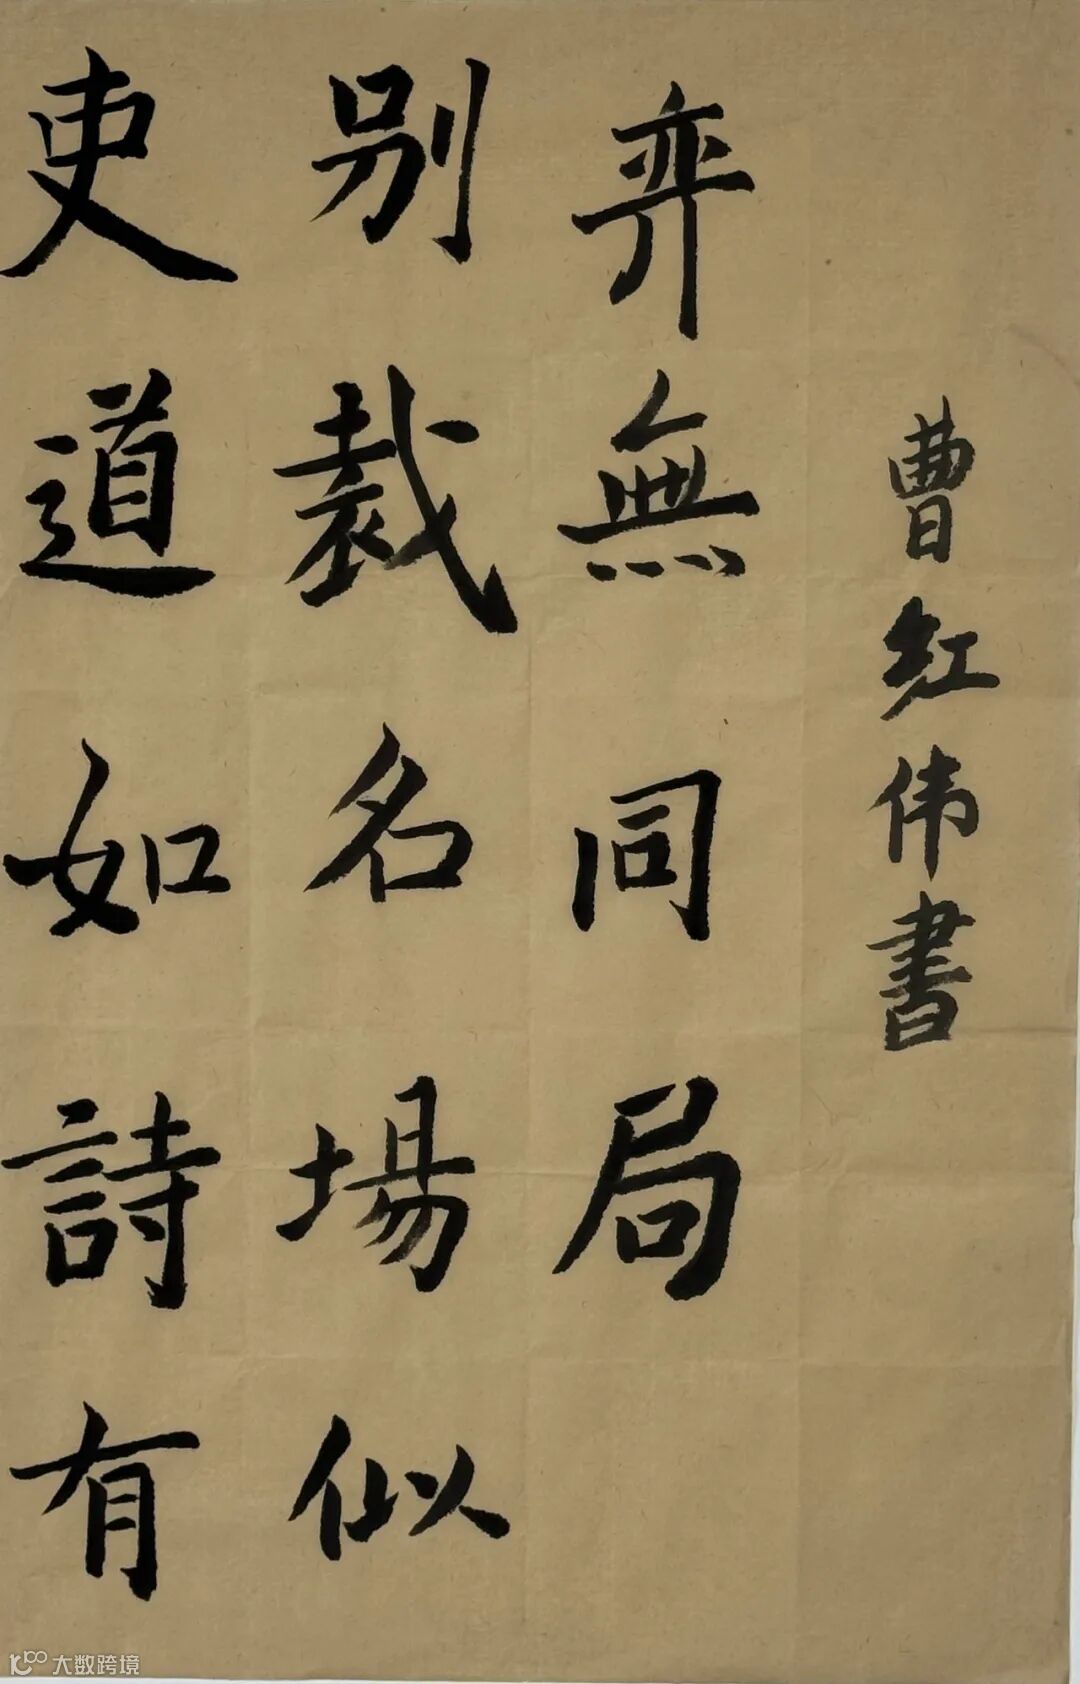 吏道如詩有
別裁名場似
弈無同局
曹红伟書
大数跨境